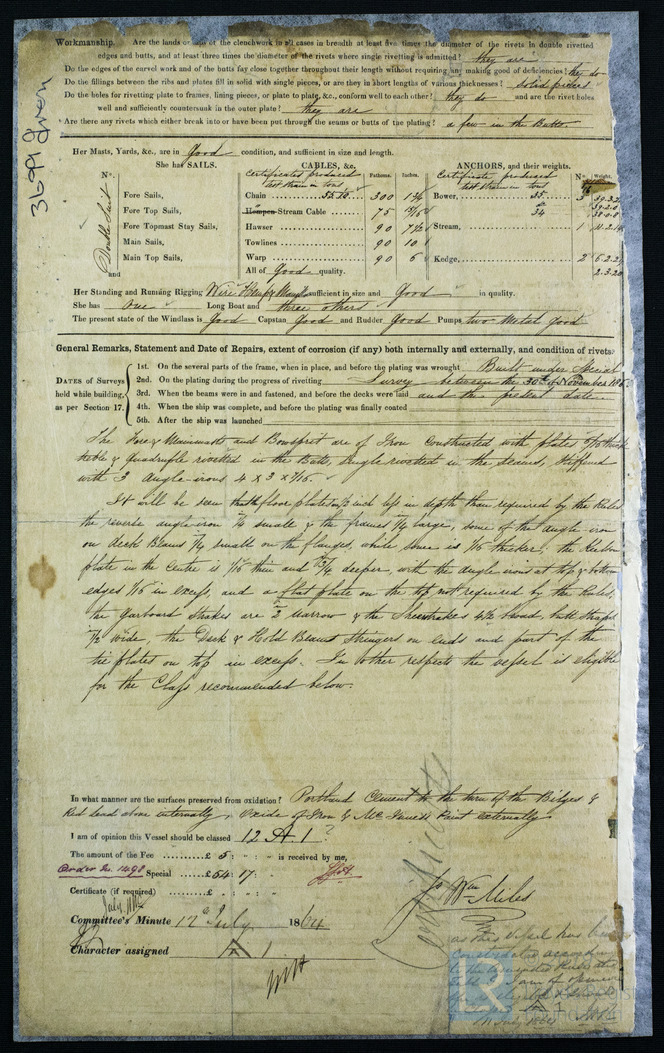 Workmanship. Are the lands or laps of the clenchwork in all cases in breadth at least five times the diameter of the rivets in double rivetted
edges and butts, and at least three times the diameter of the rivets where single rivetting is admitted? they are
Do the edges of the curvel work and of the butts fay close together throughout their length without requiring any making good of deficiencies? they do
Do the fillings between the ribs and plates fill in solid with single pieces, or are they in short lengths of various thicknesses? solid pieces
Do the holes for rivetting plate to frames, lining pieces, or plate to plate, &c., conform well to each other? they do and are the rivet holes
well and sufficiently countersunk in the outer plate? they are
Are there any rivets which either break into or have been put through the seams or butts of the plating? a few in the Butts.
3699 Iron
Her Masts, Yards, &c., are in Good condition, and sufficient in size and length.
She has SAILS. CABLES, &c. ANCHORS, and their weights.
N°. Certificates produced Fathoms. Inches. Certificate produced N°. Weight.
test strain in tons test strain in tons
Fore Sails, Chain 55 10 300 1 3/4 Bower, 35 3
Fore Top Sails, Hempen Stream Cable 75 34
Fore Topmast Stay Sails, Hawser 90 7 1/2 Stream, 1
Main Sails, Towlines 90 10
Main Top Sails, Warp 90 6 Kedge, 2
Double Suit
and All of Good quality.
Her Standing and Running Rigging Wire Hemp & Manilla sufficient in size and Good in quality.
She has one Long Boat and three others
The present state of the Windlass is Good Capstan Good and Rudder Good Pumps two Metal good
General Remarks, Statement and Date of Repairs, extent of corrosion (if any) both internally and externally, and condition of rivets.
DATES of Surveys held while building, as per Section 17.
1st. On the several parts of the frame, when in place, and before the plating was wrought Built under Special
2nd. On the plating during the progress of rivetting Survey between the 30th of November 186
3rd. When the beams were in and fastened, and before the decks were laid and the present date
4th. When the ship was complete, and before the plating was finally coated
5th. After the ship was launched
The Fore & Mainmasts and Bowsprit are of Iron Constructed with plates thick
treble & Quadruple rivetted in the Butts, Single rivetted in the seams, Stiffened
with 3 Angle-irons 4 x 3 x 7/16.
It will be seen that the floor plates are inch less in depth than required by the Rules
the reverse angle-iron 1/4 small & the frames large, some of the angle-iron
on deck Beams 1/4 small on the flanges, while some is 1/16 thicker, the Keelson
plate in the centre is 1/16 thin and deeper, with the angle irons at top & bottom
edges 1/16 in excess, and a flat plate on the top not required by the Rules,
the Garboard Strakes are 2 narrow & the Sheerstrakes 4 1/2 broad, butt straps
1/2 wide, the Deck & Hold Beams Stringers on ends and part of the
tie plates on top in excess. In other respects the vessel is eligible
for the Class recommended below.
In what manner are the surfaces preserved from oxidation? Portland Cement to the turn of the Bilges &
Red lead above internally, Oxide of Iron & Mc Innes's Paint externally
I am of opinion this Vessel should be classed 12 A 1
The amount of the Fee ........£ 5 : " : " is received by me,
Order No. 1498 Special ........£ 54 : 17 : "
Certificate (if required) ........£ " : " : "
Wm Miles
Committee's Minute 12th July 1864
Character assigned A 1
as this Vessel has been
constructed according
July 1864